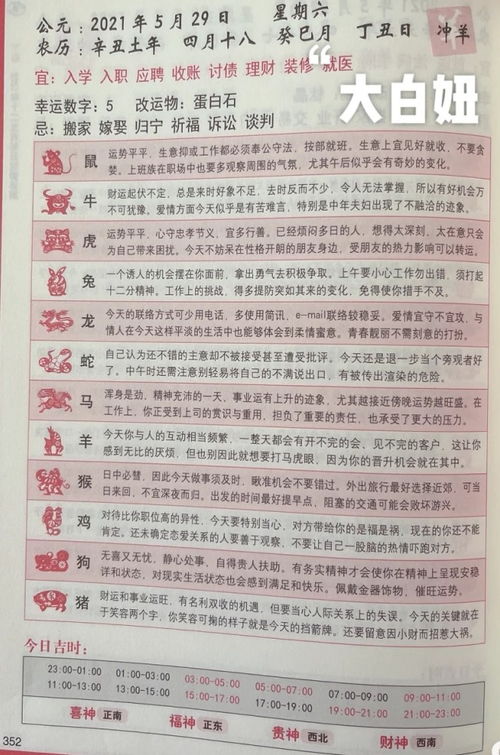 公元：2021年5月29日 星期六
农历：辛丑土年 四月十八 癸巳月 丁丑日 冲羊
宜：入学 入职 应聘 收账 讨债 理财 装修 就医
“大白妞
幸运数字：5 改运物：蛋白石
忌：搬家 嫁娶 归宁 祈福 诉讼 谈判
鼠
运势平平，生意抑或工作都必须奉公守法，按部就班。生意上宜见好就收，不要贪
婪。上班族在职场中也要多观察周围的气氛，尤其午后似乎会有奇妙的变化。
牛
财运起伏不定，总是来时好象不足，去时反而不少，令人无法掌握，所以有好机会万
不可犹豫。爱情方面今天似乎是有苦难言，特别是中年夫妇出现了不融洽的迹象。
虎
运势平平，心守忠孝节义，宜多行善。已经烦闷多日的人，想得太深刻，太在意只会
为自己带来困扰。今天不妨呆在性格开朗的朋友身边，受朋友的热力影响可以转运。
兔
一个诱人的机会摆在你面前，拿出勇气去积极争取。上午要小心工作勿出错，须打起
十二分精神。工作上的挑战，得多提防突如其来的变化，免得使你措手不及。
龙
今天的联络方式可少用电话，多使用简讯、e-mail联络较稳妥。爱情宜守不宜攻，与
情人在今天这样平淡的生活中也能够体会到柔情蜜意。青春靓丽不需刻意的打扮。
蛇
自己认为还不错的主意却不被接受甚至遭受批评。今天还是退一步当个旁观者好
了。中午时还需注意别轻易将自己的不满说出口，有被传出渲染的危险。
马
浑身是劲，精神充沛的一天，事业运有上升的迹象，尤其越接近傍晚运势越旺盛。在
工作上，你正受到上司的赏识与重用，担负了重要的责任，也承受了更大的压力。
羊
今天你与人的互动相当频繁，一整天都会有开不完的会，见不完的客户，这让你
感到无比的厌烦，但也别因此就想要打马虎眼，因为你的晋升机会就在其中。
猴
日中必彗，因此今天做事须及时，瞅准机会不要错过。外出旅行最好选择近郊，可当
日来回，不宜深夜而归。出发的时间最好提早点，阻塞的交通可能会败坏游兴。
鸡
对待比你职位高的异性，今天要特别当心，对方带给你的是福是祸，现在的你还不能
肯定。还未确定恋爱关系的人要善于观察，不要让自己一股脑的热情吓跑对方。
狗
无喜又无忧，静心处事，自得贵人扶助。有务实精神才会使你在精神上呈现安稳
详和状态，对现实生活状态也会感到满足和快乐。佩戴金器饰物，催旺运势。
猪
财运和事业运旺，有名利双收的机遇，但要当心人际关系上的失误。今天的关键就在
于笑容两个字，你笑容可掬的样子就是今天的挡箭牌。还要留意因小财而招惹大祸。
今日吉时：
23:00-01:00 01:00-03:00 03:00-05:00 05:00-07:00 07:00-09:00 09:00-11:00
11:00-13:00 13:00-15:00 15:00-17:00 17:00-19:00 19:00-21:00 21:00-23:00
喜神 正南 福神 正东 贵神 西北 财神 西南
352